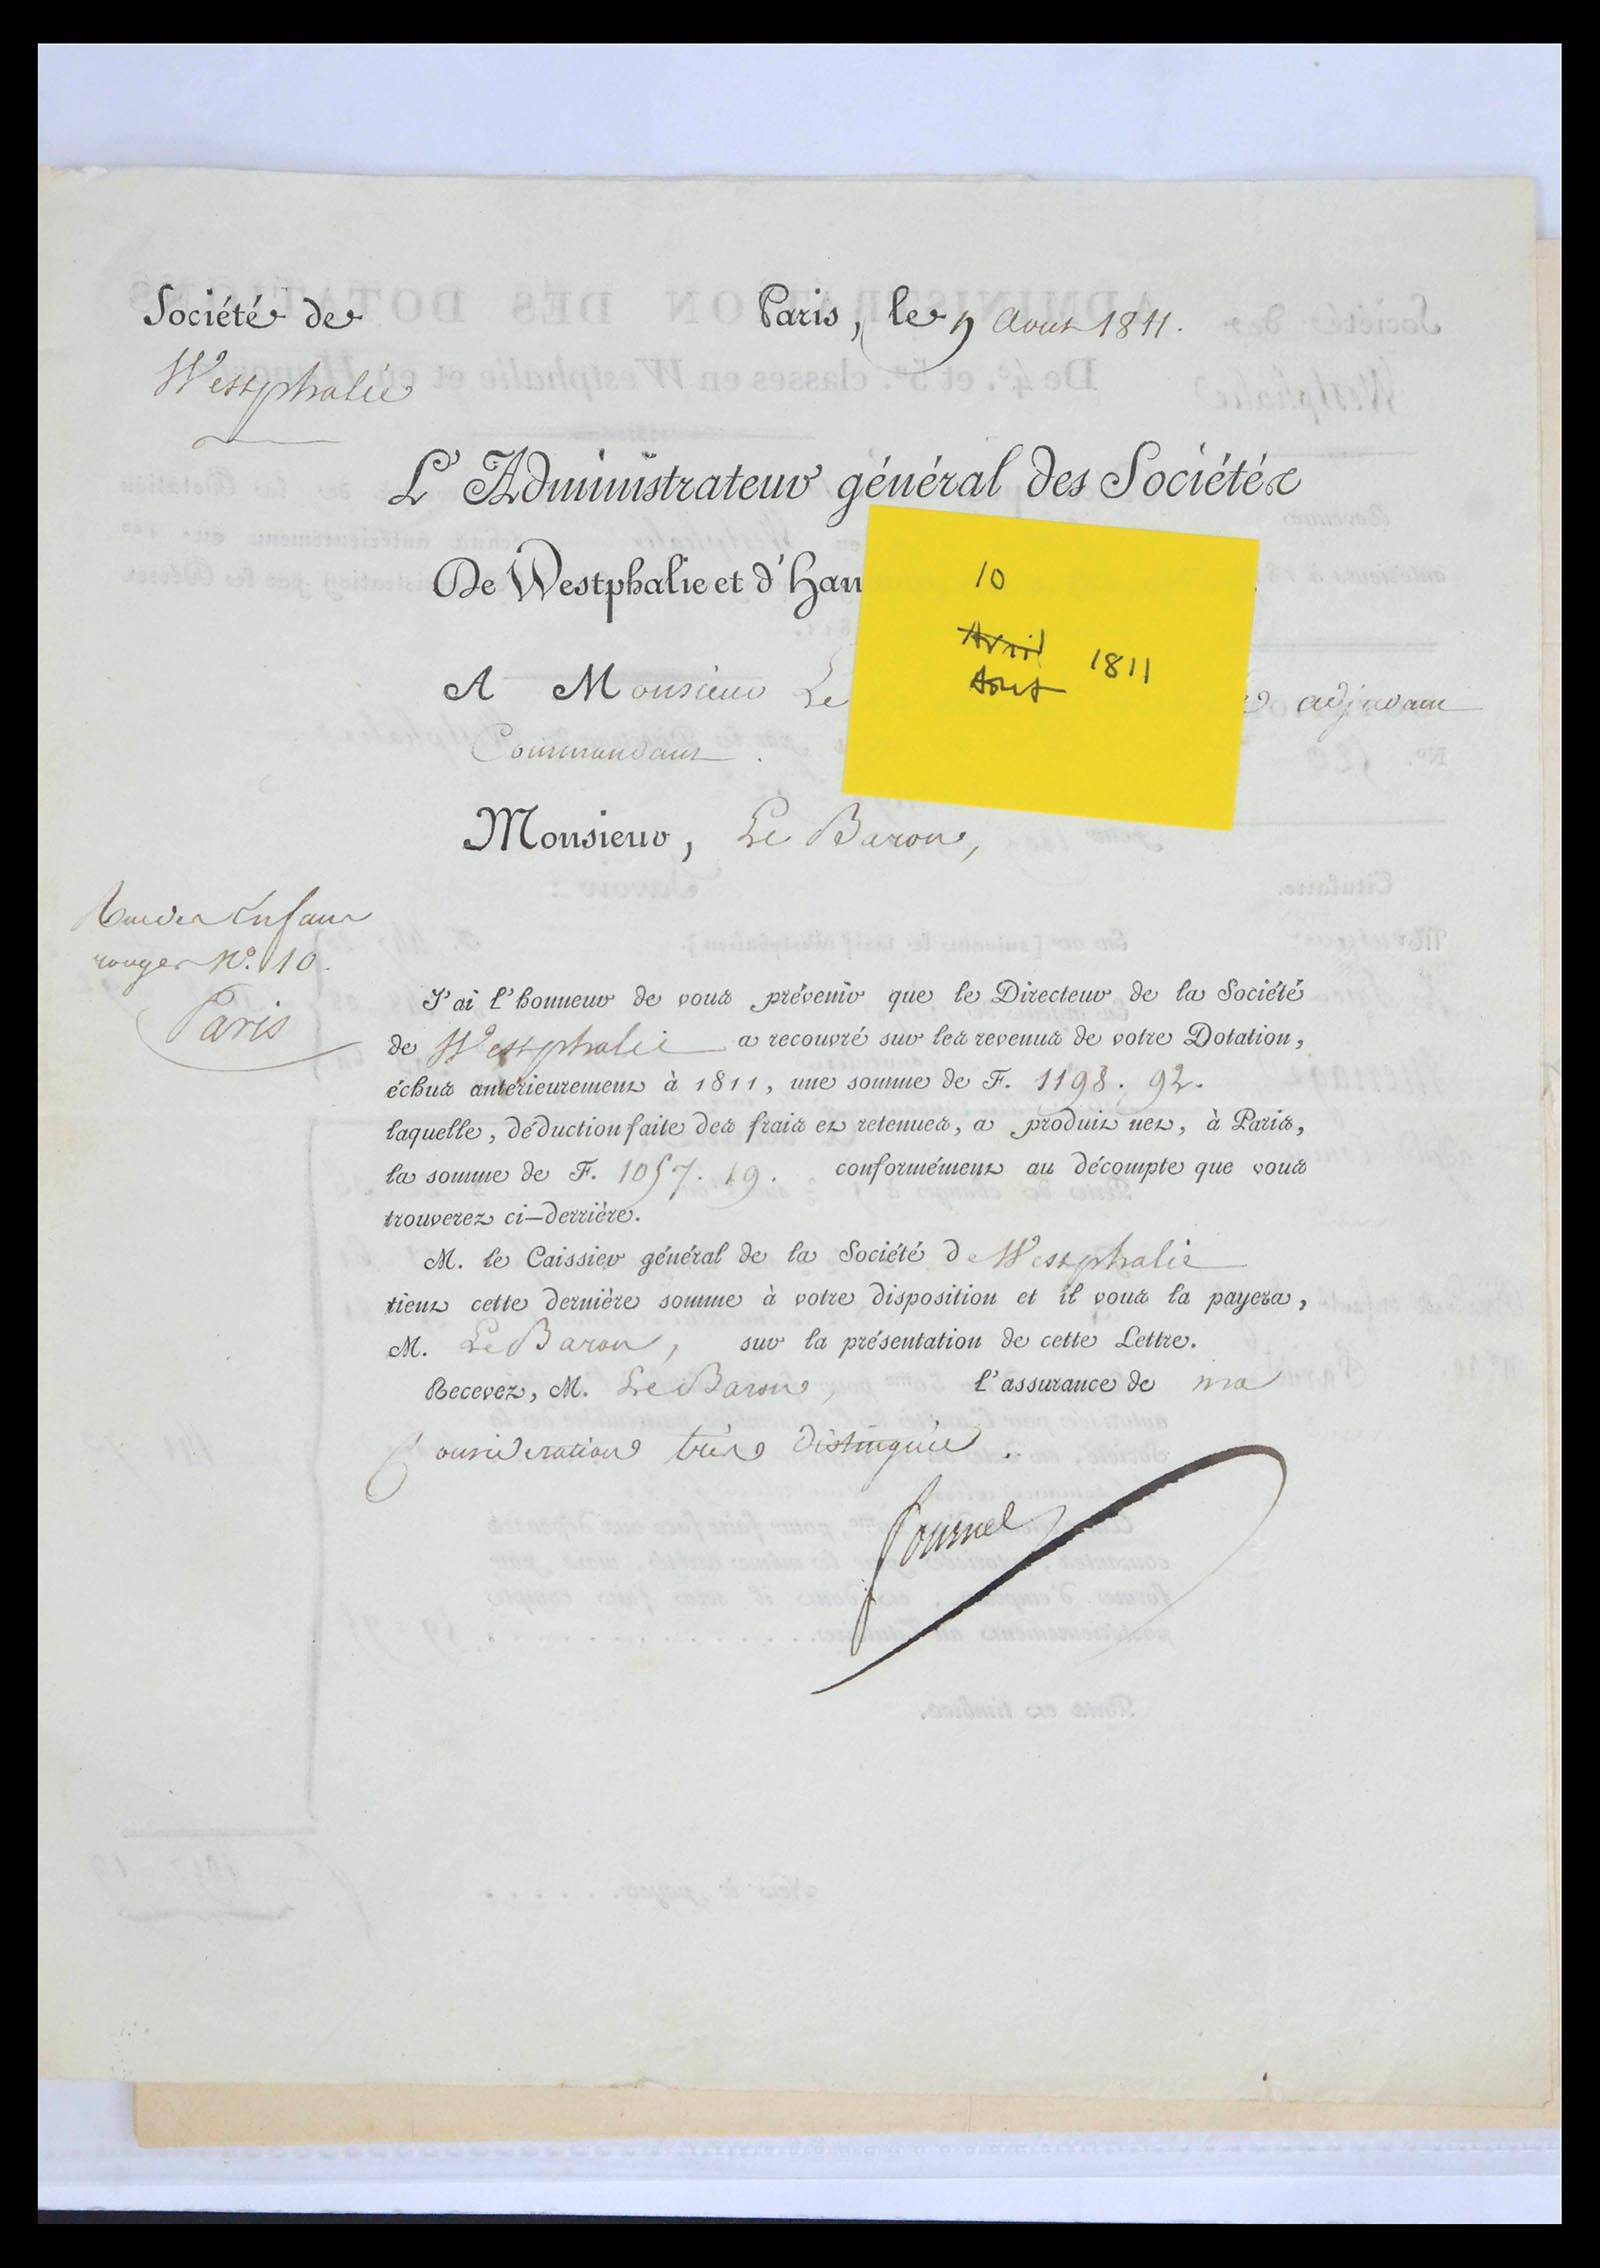 Société de
Westphalie
Paris, le 9 Aout 1811.
L'Administrateur général des Sociétés
De Westphalie et d'Han
10
Avril
Aout 1811
A Monsieur Le
adjudant
Commandant.
Monsieur, Le Baron,
Rue des Enfans
rouges N.º 10.
Paris
J'ai l'honneur de vous prévenir que le Directeur de la Société
de Westphalie a recouvré sur les revenus de votre Dotation,
échus antérieurement à 1811, une somme de F. 1198. 92.
laquelle, déduction faite des frais et retenues, a produit net, à Paris,
la somme de F. 1057. 19. conformément au décompte que vous
trouverez ci-derrière.
M. le Caissier général de la Société de Westphalie
tient cette dernière somme à votre disposition et il vous la payera,
M. Le Baron, sur la présentation de cette Lettre.
Recevez, M. Le Baron, l'assurance de ma
Consideration très distinguée.